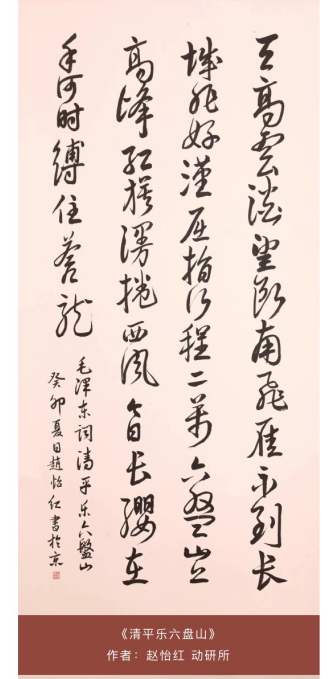 天高雲淡望断南飛雁不到长
城非好漢屈指行程二萬六盤山上
高峰红旗漫捲西风今日长缨在
手何时縛住苍龙
毛泽东词清平乐六盤山
癸卯夏日趙怡红書於京
《清平乐六盘山》
作者：赵怡红 动研所